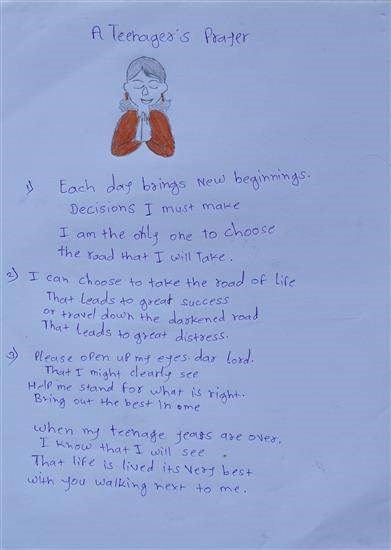 A Teenager's Prayer
1) Each day brings New beginnings.
Decisions I must make
I am the only one to choose
the road that I will Take.
2) I can choose to take the road of life
That leads to great success
or travel down the darkened road
That leads to great distress.
3) Please open up my eyes. dar lord.
That I might clearly see
Help me stand for what is right.
Bring out the best in me
when my teenage years are over.
I know that I will see
That life is lived its very best
with you walking next to me.